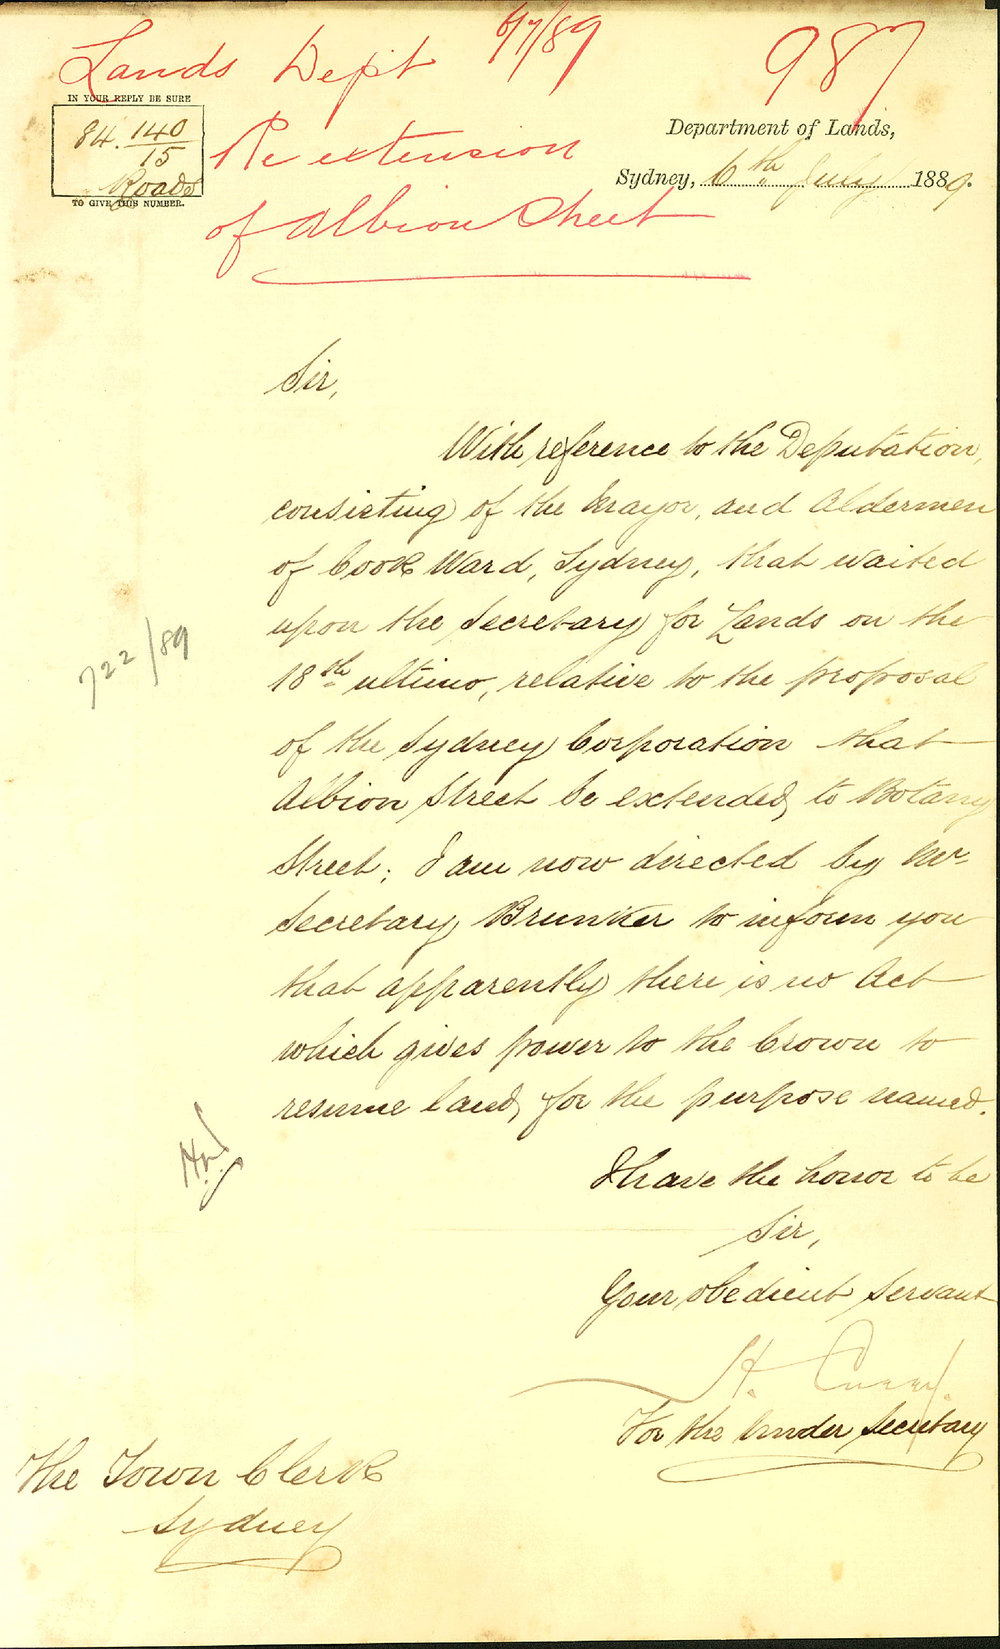 Lands Dept 6/7/89
987
IN YOUR REPLY BE SURE
84. 140
15
Roads
TO GIVE THIS NUMBER.
Re extension
of Albion Street
Department of Lands,
Sydney, 6th July 1889.
Sir,
With reference to the Deputation,
consisting of the Mayor, and Aldermen
of Cook Ward, Sydney, that waited
upon the Secretary for Lands on the
18th ultimo, relative to the proposal
of the Sydney Corporation that
Albion Street be extended to Botany
Street; I am now directed by Mr.
Secretary Brunker to inform you
that apparently there is no Act
which gives power to the Crown to
resume land, for the purpose named.
722/89
I have the honor to be
Sir,
Your obedient Servant
H.
For the Under Secretary
The Town Clerk
Sydney